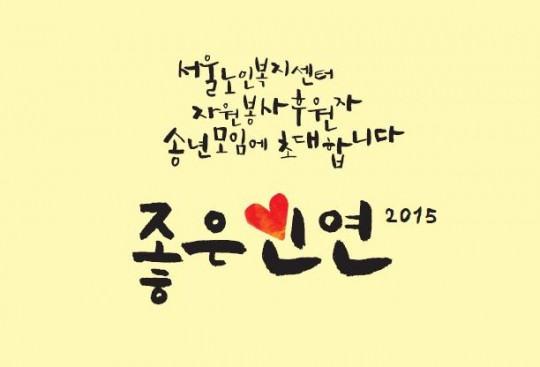 서울노인복지센터
자원봉사후원자
송년모임에 초대합니다
좋은인연 2015